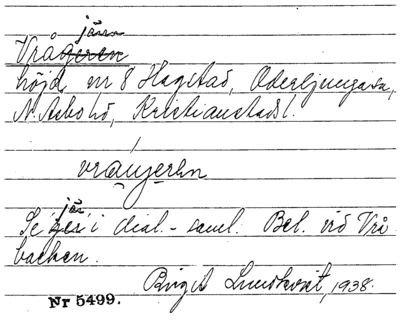 järn
Vrågeren
höjd nr 8 Hagstad, Oderljunga sn,
N. Åsbo hd, Kristianstads l.
vrånjeren
jär
Se 'ger' i dial.-saml. Bel. vid Vrå-
backen.
Birgit Lundkvist, 1938.
Nr 5499.